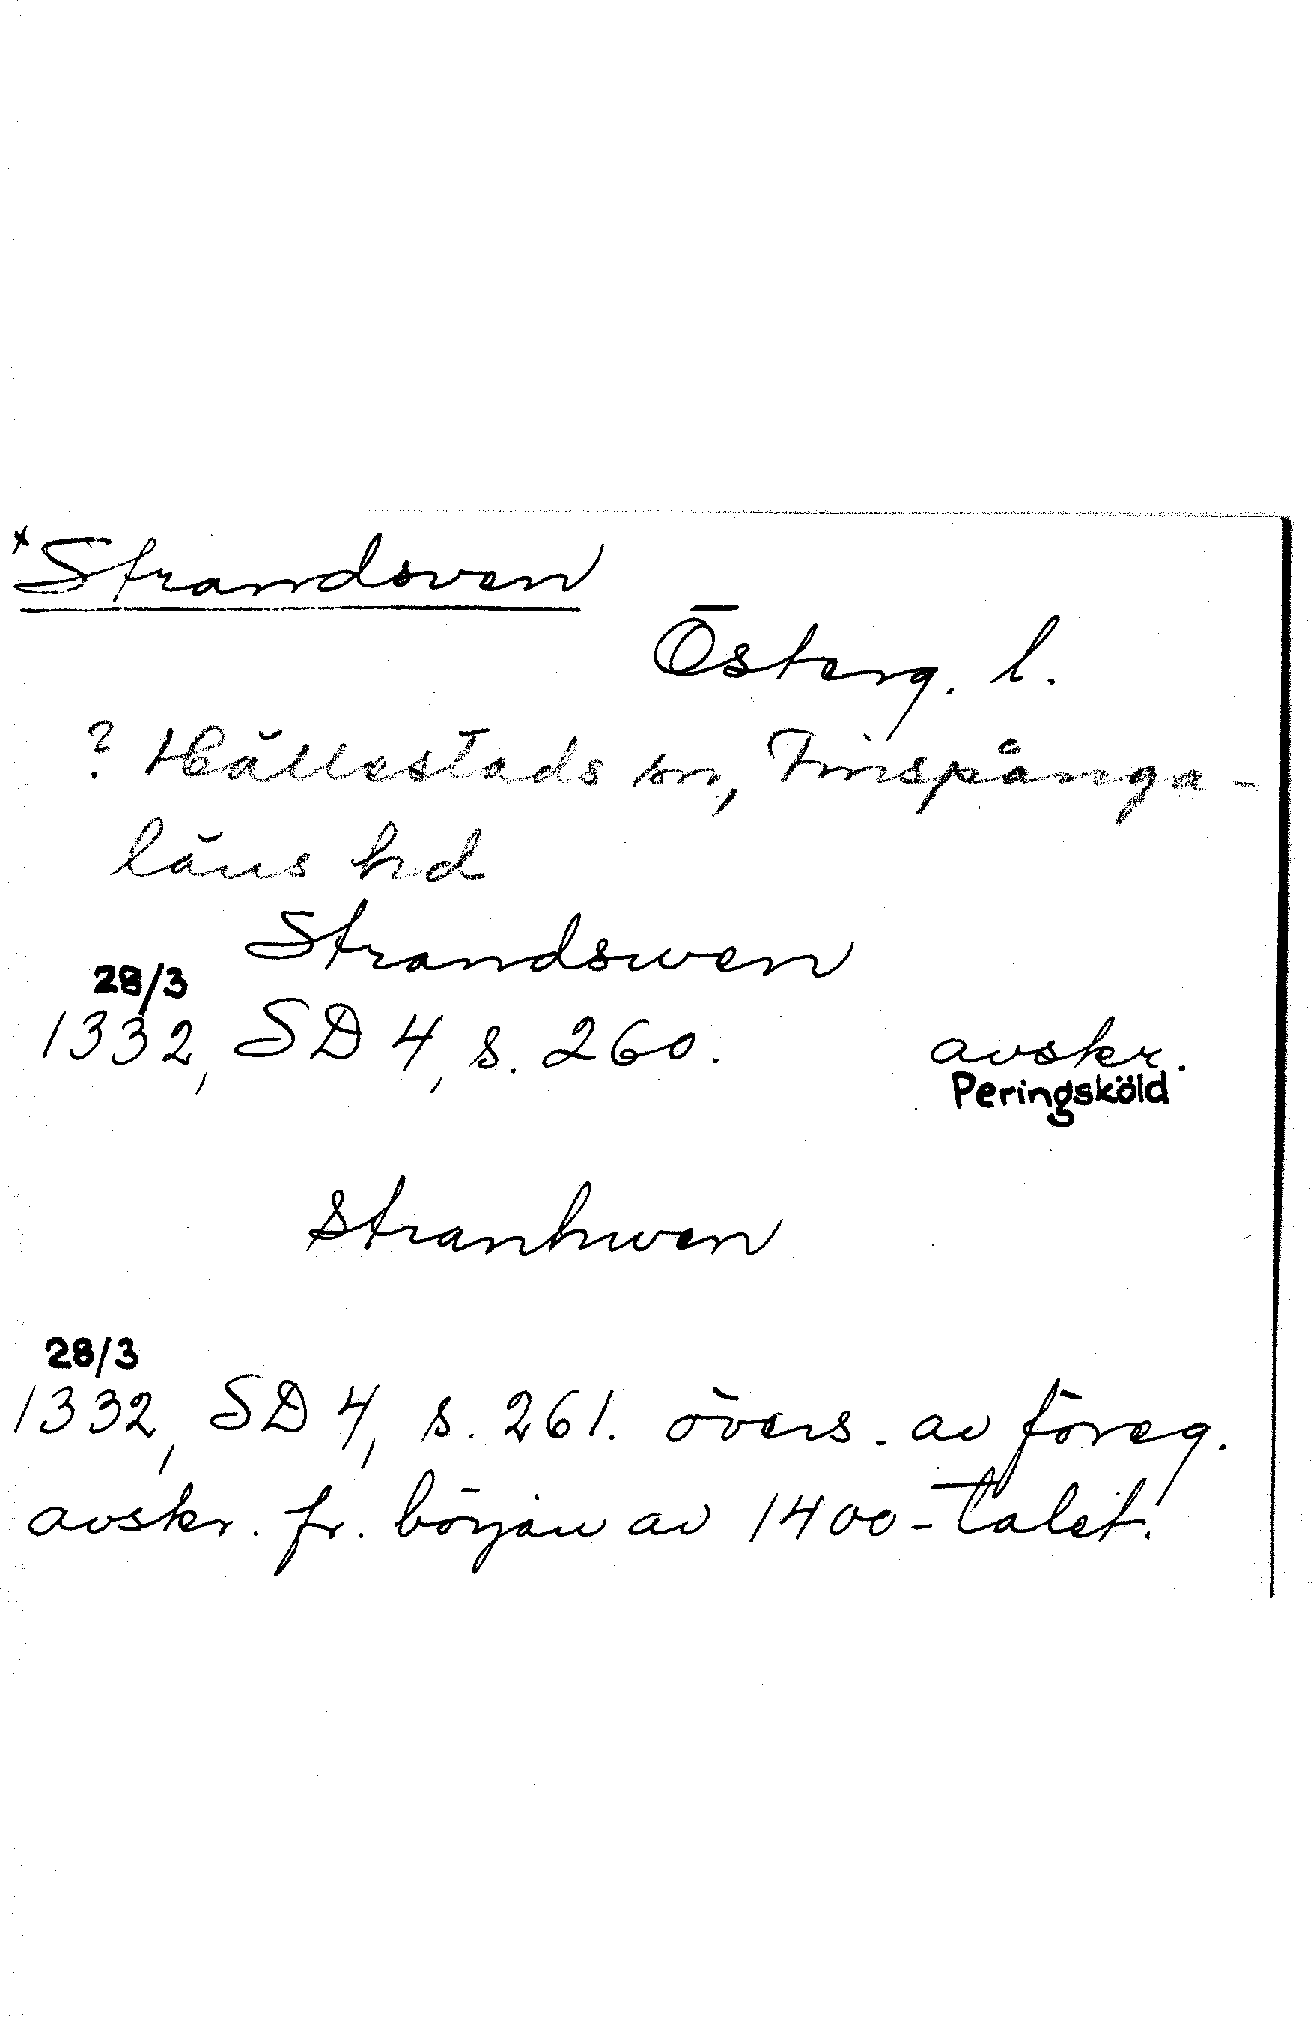 *Strandsven
Österg. l.
? Hällestads sn, Finspånga-
läns hd
Strandswen
28/3
1332, SD 4, s. 260. avskr.
Peringsköld
stranhwen
28/3
1332, SD 4, s. 261. övers. av föreg.
avskr. fr. början av 1400-talet.